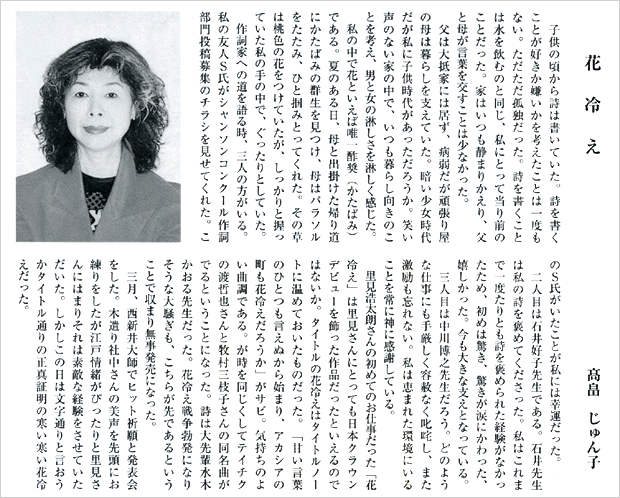 花冷え
高畠 じゅん子
子供の頃から詩は書いていた。詩を書く
ことが好きか嫌いかを考えたことは一度も
ない。ただただ孤独だった。詩を書くこと
は水を飲むのと同じ、私にとって当り前の
ことだった。家はいつも静まりかえり、父
と母が言葉を交すことは少なかった。
父は大抵家には居ず、病弱だが頑張り屋
の母は暮らしを支えていた。暗い少女時代
だが私に子供時代があっただろうか。笑い
声のない家の中で、いつも暮らし向きのこ
とを考え、男と女の淋しさを淋しく感じた。
私の中で花といえば唯一酢漿（かたばみ）
である。夏のある日、母と出掛けた帰り道
にかたばみの群生を見つけ、母はパラソル
をたたみ、ひと掴みとってくれた。その草
は桃色の花をつけていたが、しっかりと握っ
ていた私の手の中で、ぐったりとしていた。
作詞家への道を語る時、三人の方がいる。
私の友人S氏がシャンソンコンクール作詞
部門投稿募集のチラシを見せてくれた。こ
のS氏がいたことが私には幸運だった。
二人目は石井好子先生である。石井先生
は私の詩を褒めてくださった。私はこれま
で一度たりとも詩を褒められた経験がなかっ
たため、初めは驚き、驚きが涙にかわった。
嬉しかった。今も大きな支えとなっている。
三人目は中川博之先生だろう。どのよう
な仕事にも手厳しく容赦なく叱咤し、また
激励も忘れない。私は恵まれた環境にいる
ことを常に神に感謝している。
里見浩太朗さんの初めてのお仕事だった「花
冷え」は里見さんにとっても日本クラウン
デビューを飾った作品だったといえるので
はないか。タイトルの花冷えはタイトルノー
トに温めておいたものだった。「甘い言葉
のひとつも言えぬから始まり、アカシアの
町も花冷えだろうか」がサビ。気持ちのよ
い曲調である。が時を同じくしてテイチク
の渡哲也さんと牧村三枝子さんの同名曲が
でるということになった。詩は大先輩水木
かおる先生だった。花冷え戦争勃発になり
そうな大騒ぎも、こちらが先であるという
ことで収まり無事発売になった。
三月、西新井大師でヒット祈願と発表会
をした。木遣り社中さんの美声を先頭にお
練りをしたが江戸情緒がぴったりと里見さ
んにはまりそれは素敵な経験をさせていた
だいた。しかしこの日は文字通りと言おう
かタイトル通りの正真証明の寒い寒い花冷
えだった。